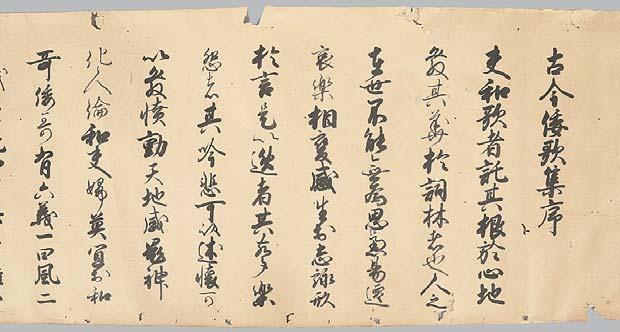 古今倭歌集序
夫和歌者託其根於心地
發其華於詞林者也人之
在世不能無為思慮易遷
哀樂相變感生於志詠形
於言是以逸者其聲樂
怨者其吟悲可以述懷可
以發憤動天地感鬼神
化人倫和夫婦莫宜於和
哥倭哥有六義一曰風二